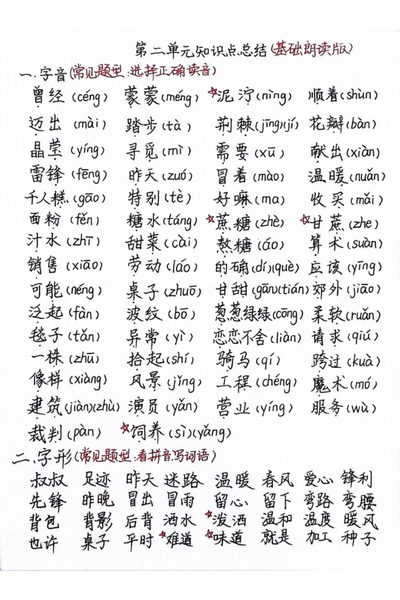 第二单元知识点总结(基础朗读版)
一.字音(常见题型:选择正确读音)
曾经(céng) 蒙蒙(méng) ☆泥泞(nìng) 顺着(shùn)
迈出(mài) 踏步(tà) 荆棘(jīng)(jí) 花瓣(bàn)
晶莹(yíng) 寻觅(mì) 需要(xū) 献出(xiàn)
雷锋(fēng) 昨天(zuó) 冒着(mào) 温暖(nuǎn)
千人糕(gāo) 特别(tè) 好嘛(ma) 收买(mǎi)
面粉(fěn) 糖水(táng) ☆蔗糖(zhè) ☆甘蔗(zhe)
汁水(zhī) 甜菜(cài) 熬糖(áo) 算术(suàn)
销售(xiāo) 劳动(láo) 的确(dí)(què) 应该(yīng)
可能(néng) 桌子(zhuō) 甘甜(gān)(tián) 郊外(jiāo)
泛起(fàn) 波纹(bō) 葱葱绿绿(cōng) 柔软(ruǎn)
毯子(tǎn) 异常(yì) 恋恋不舍(liàn) 请求(qiú)
一株(zhū) 拾起(shí) 骑马(qí) 跨过(kuà)
像样(xiàng) 风景(jǐng) 工程(chéng) 魔术(mó)
建筑(jiàn)(zhù) 演员(yǎn) 营业(yíng) 服务(wù)
裁判(pàn) ☆饲养(sì)(yǎng)
二.字形(常见题型:看拼音写词语)
叔叔 足迹 昨天 迷路 温暖 春风 爱心 锋利
先锋 昨晚 冒出 冒雨 留心 留下 弯路 弯腰
背包 背影 后背 洒水 ☆泼洒 温和 温度 暖风
也许 桌子 平时 ☆难道 ☆味道 就是 加工 种子